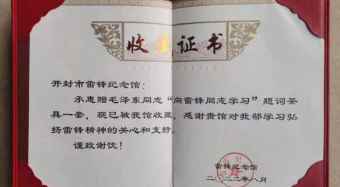 收藏证书
开封市雷锋纪念馆：
承惠赠毛泽东同志“向雷锋同志学习”题词茶
具一套，现已被我馆收藏，感谢贵馆对我部学习弘
扬雷锋精神的关心和支持。
谨致谢忱！
雷锋纪念馆
二〇二二年八月